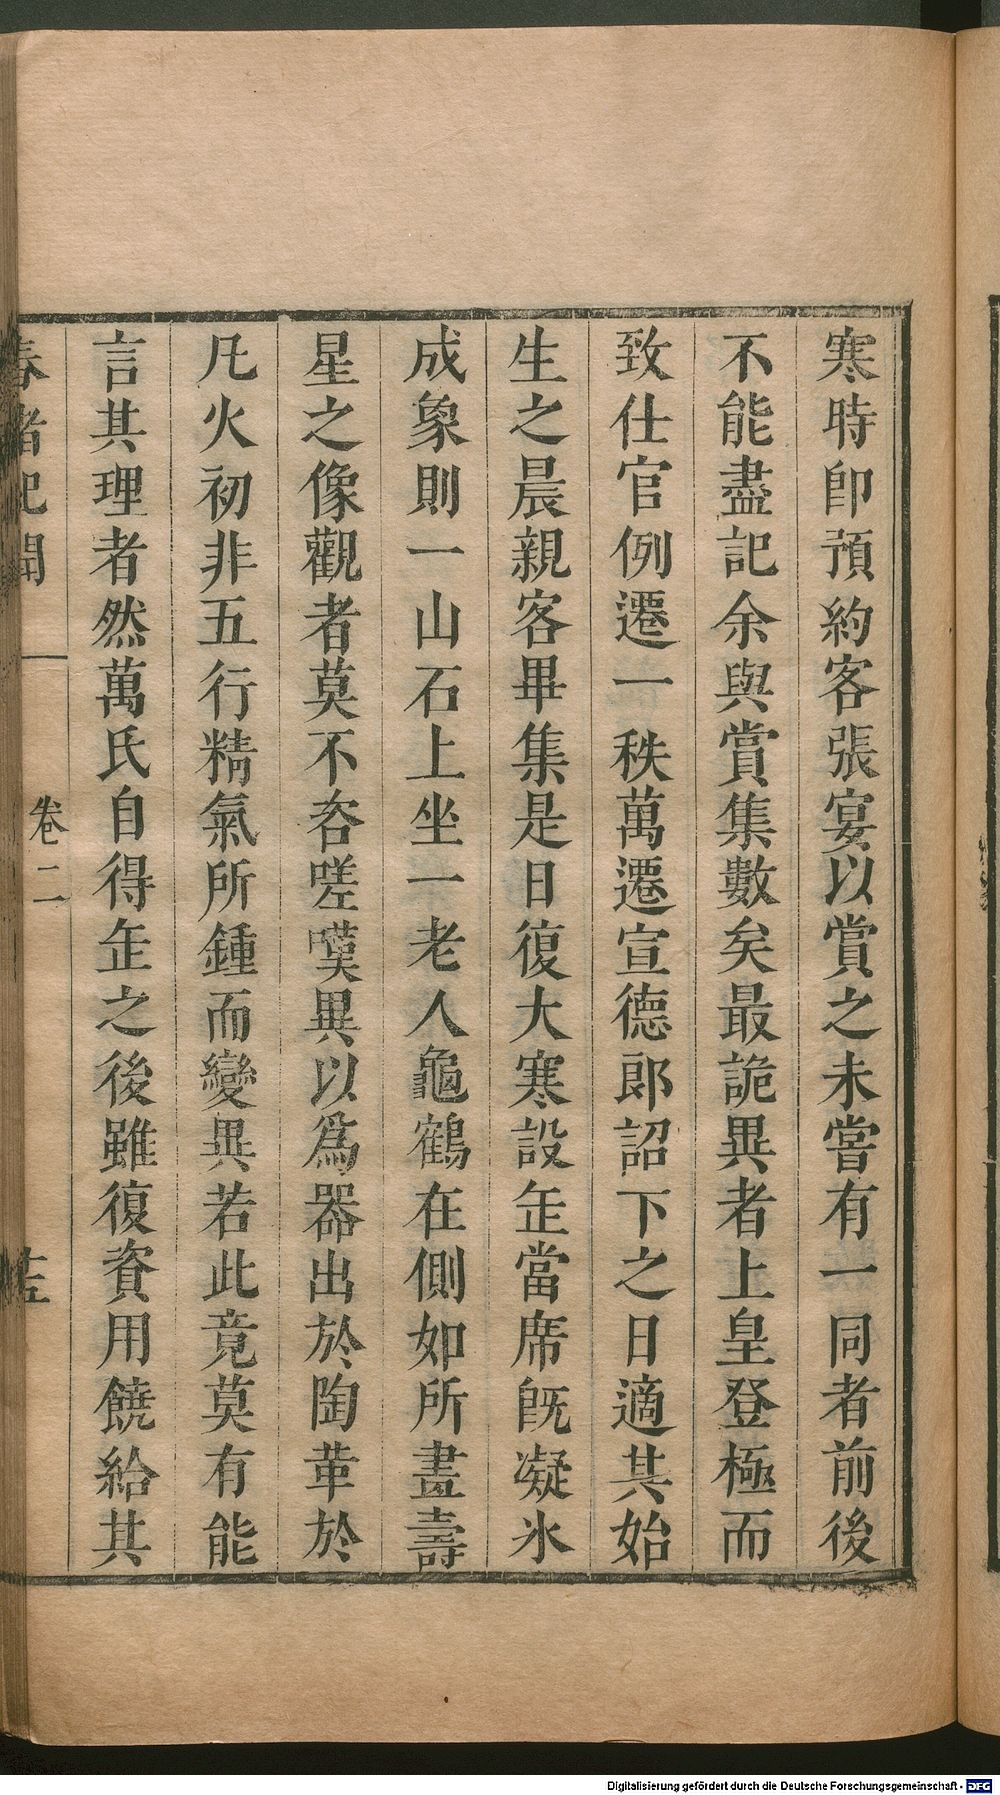 寒時卽預約客張宴以賞之未嘗有一同者前後
不能盡記余與賞集數矣最詭異者上皇登極而
致仕官例遷一秩萬遷宣德郎詔下之日適其始
生之晨親客畢集是日復大寒設缶當席旣凝氷
成象則一山石上坐一老人龜鶴在側如所畫壽
星之像觀者莫不咨嗟嘆異以爲器出於陶革於
凡火初非五行精氣所鍾而變異若此竟莫有能
言其理者然萬氏自得缶之後雖復資用饒給其
春渚紀聞
卷二
Digitalisierung gefördert durch die Deutsche Forschungsgemeinschaft - DFG